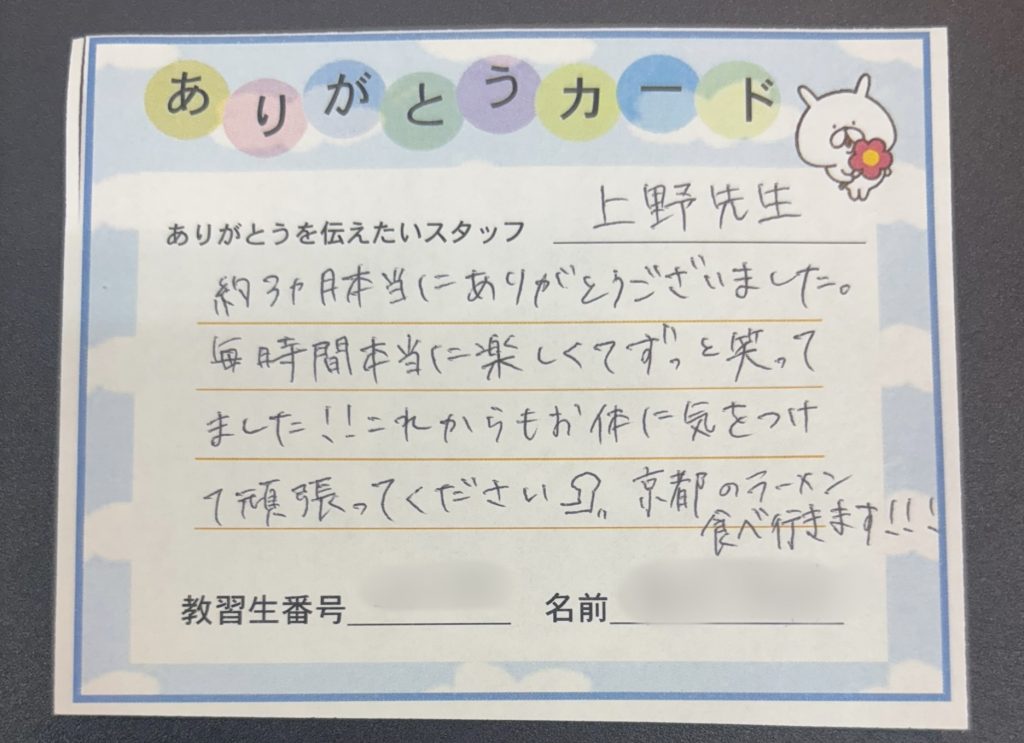 ありがとうカード
ありがとうを伝えたいスタッフ 上野先生
約3ヵ月本当にありがとうございました。
毎時間本当に楽しくてずっと笑って
ました!!これからもお体に気をつけ
て頑張ってください 京都のラーメン
食べ行きます!!!
教習生番号 名前